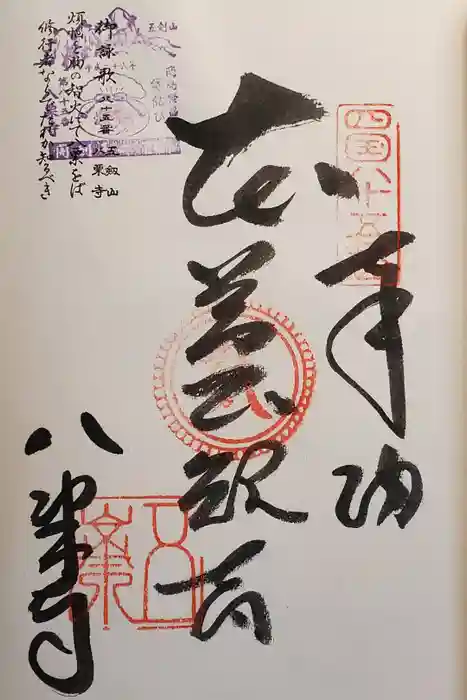 四国八十五番
奉納
本尊聖観音
八栗寺
御詠歌 八十五番 五剱山 八栗寺
煩悩を胸の智火にて八栗をば
修行者ならでたれか知るべき
五剣山